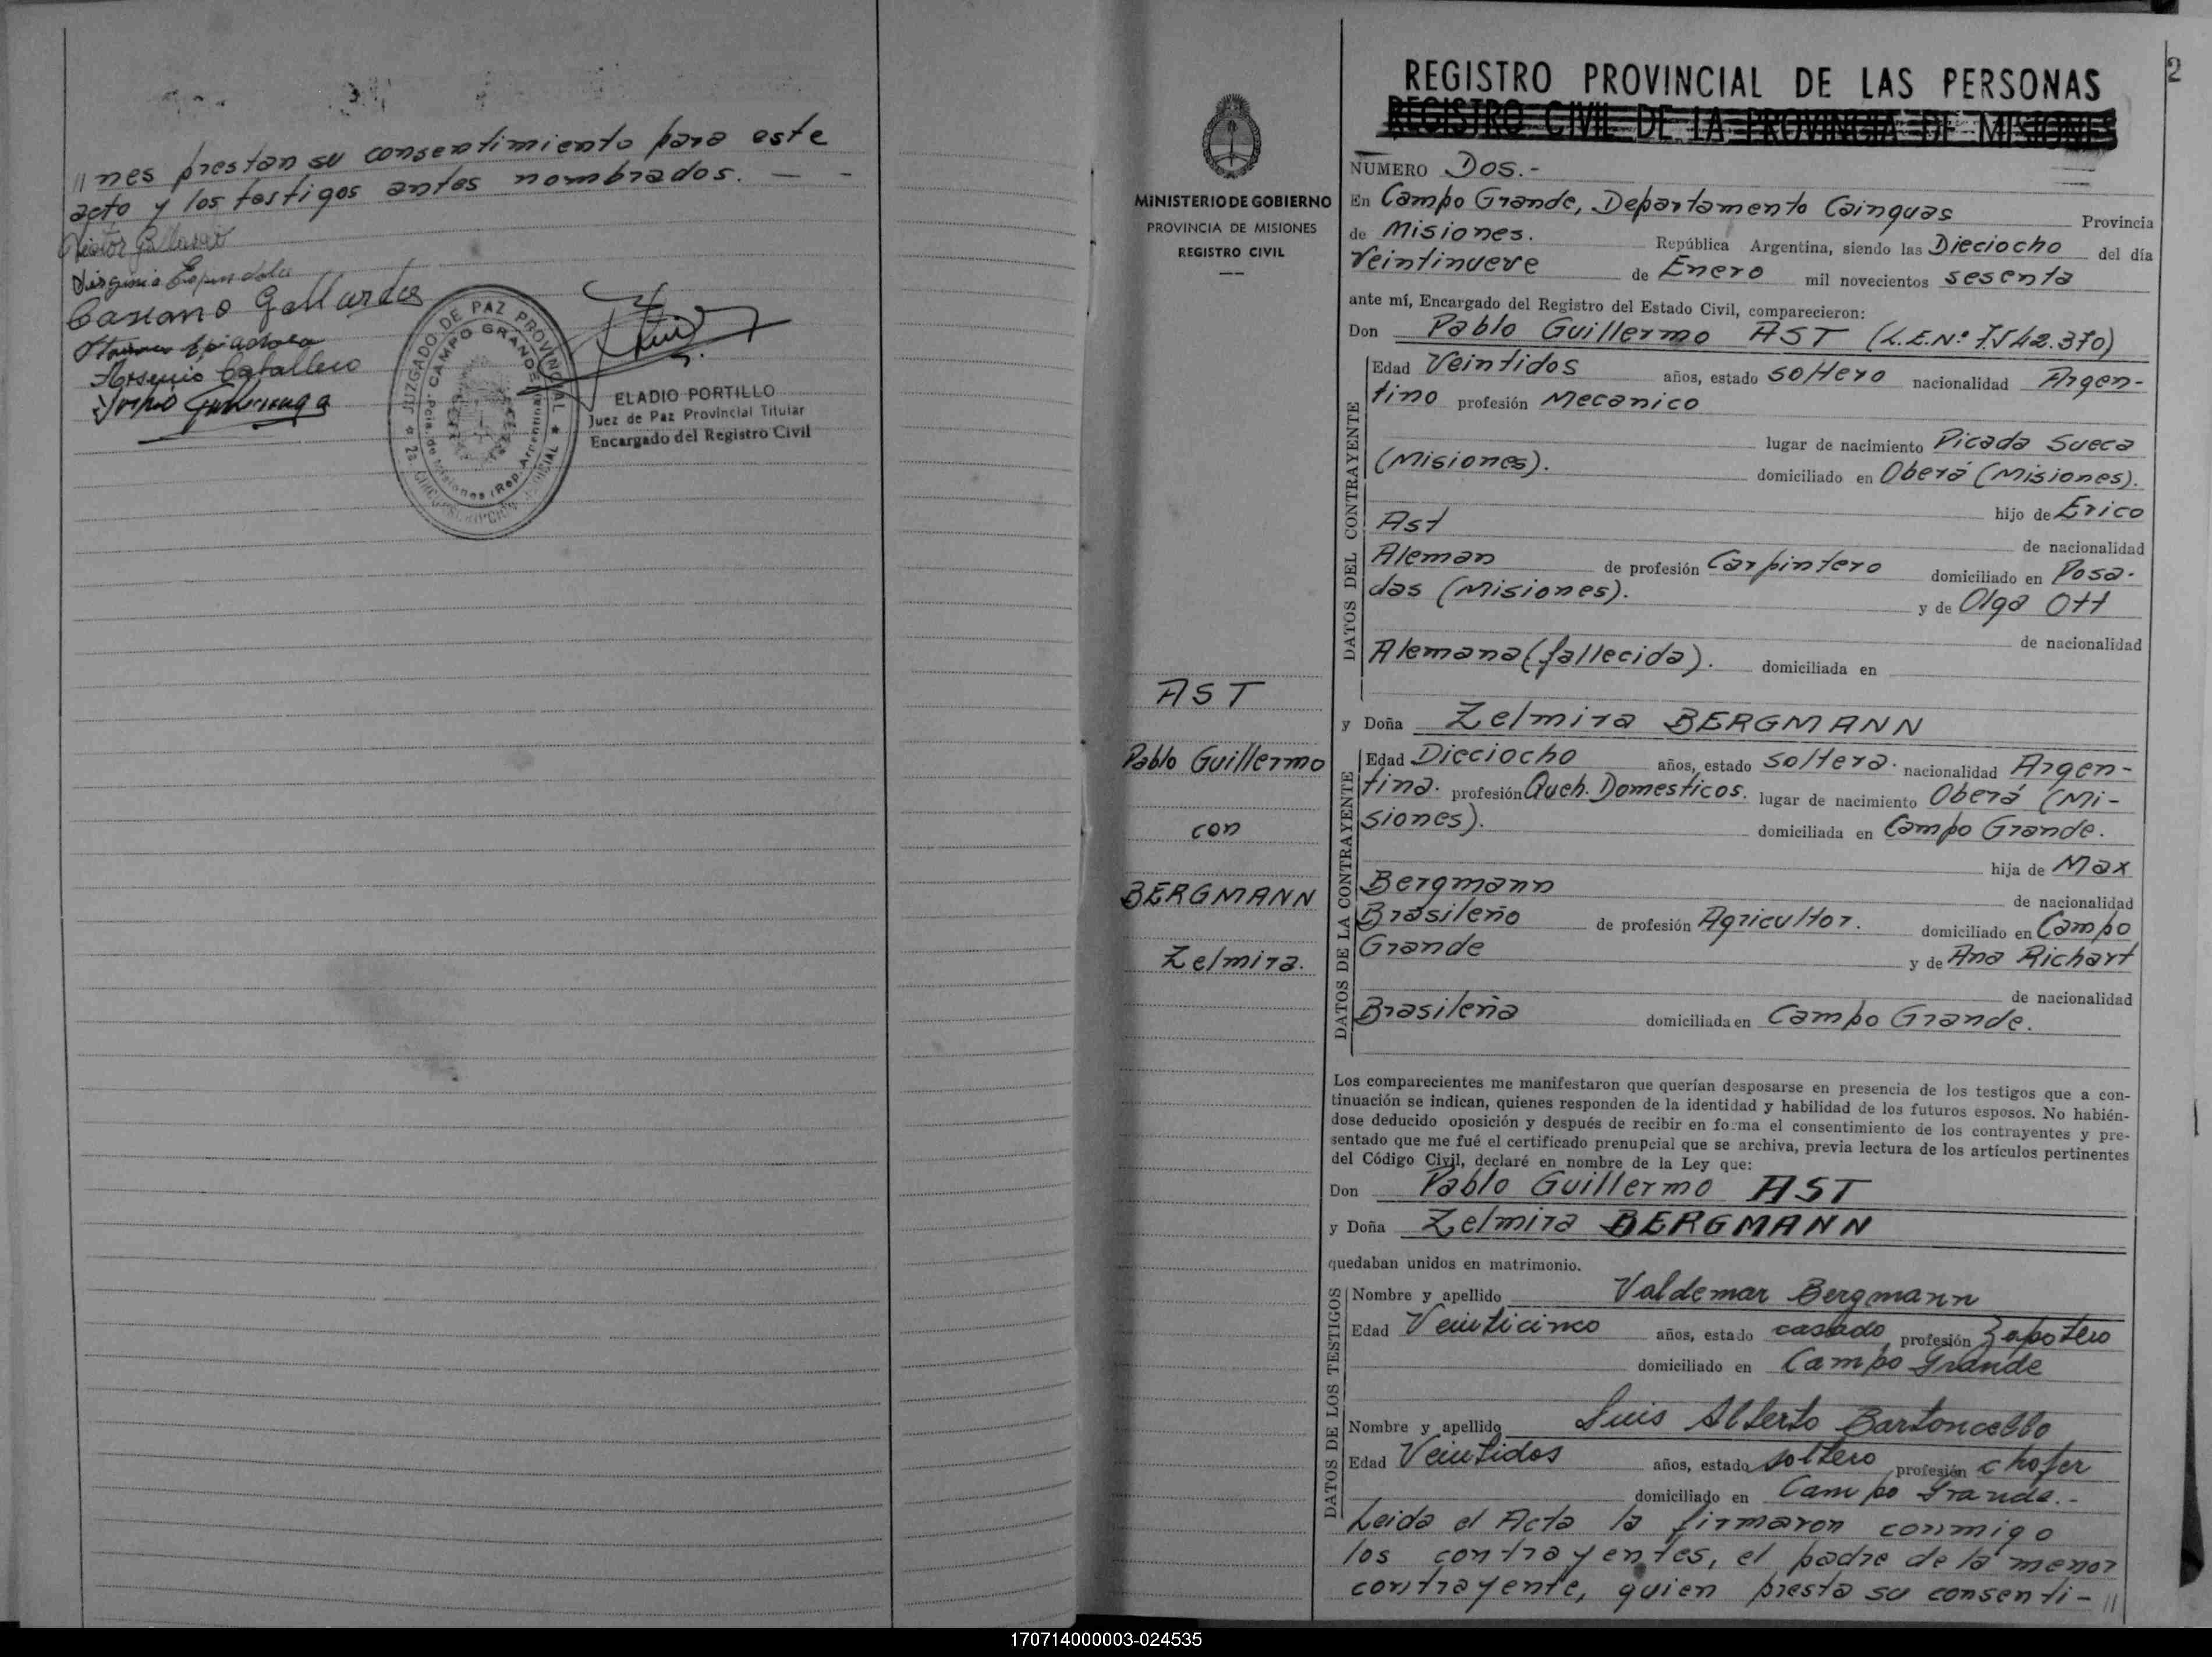 // nes prestan su consentimiento para este
acto y los testigos antes nombrados. — -
Virginia Espindola
Casiano Gallardo
Arsenio Caballero
JUZGADO DE PAZ PROVINCIAL
CAMPO GRANDE
Pcia. de Misiones (Rep. Argentina)
2a. CIRCUNSCRIPCION JUDICIAL
ELADIO PORTILLO
Juez de Paz Provincial Titular
Encargado del Registro Civil
MINISTERIO DE GOBIERNO
PROVINCIA DE MISIONES
REGISTRO CIVIL
AST
Pablo Guillermo
con
BERGMANN
Zelmira.
2
REGISTRO PROVINCIAL DE LAS PERSONAS
REGISTRO CIVIL DE LA PROVINCIA DE MISIONES
NUMERO Dos.-
En Campo Grande, Departamento Cainguas Provincia
de Misiones. República Argentina, siendo las Dieciocho del día
Veintinueve de Enero mil novecientos sesenta
ante mí, Encargado del Registro del Estado Civil, comparecieron:
Don Pablo Guillermo AST (L.E.Nº 7.542.370)
DATOS DEL CONTRAYENTE
Edad Veintidos años, estado soltero nacionalidad Argen-
tino profesión Mecanico
lugar de nacimiento Picada Sueca
(Misiones). domiciliado en Oberá (Misiones).
hijo de Erico
Ast de nacionalidad
Aleman de profesión Carpintero domiciliado en Posa-
das (Misiones). y de Olga Ott
de nacionalidad
Alemana (fallecida). domiciliada en
y Doña Zelmira BERGMANN
DATOS DE LA CONTRAYENTE
Edad Dieciocho años, estado soltera. nacionalidad Argen-
tina. profesión Queh. Domesticos. lugar de nacimiento Oberá (Mi-
siones). domiciliada en Campo Grande.
hija de Max
Bergmann de nacionalidad
Brasileño de profesión Agricultor. domiciliado en Campo
Grande y de Ana Richart
de nacionalidad
Brasileña domiciliada en Campo Grande.
Los comparecientes me manifestaron que querían desposarse en presencia de los testigos que a con-
tinuación se indican, quienes responden de la identidad y habilidad de los futuros esposos. No habién-
dose deducido oposición y después de recibir en forma el consentimiento de los contrayentes y pre-
sentado que me fué el certificado prenupcial que se archiva, previa lectura de los artículos pertinentes
del Código Civil, declaré en nombre de la Ley que:
Don Pablo Guillermo AST
y Doña Zelmira BERGMANN
quedaban unidos en matrimonio.
DATOS DE LOS TESTIGOS
Nombre y apellido Valdemar Bergmann
Edad Veinticinco años, estado casado, profesión Zapatero
domiciliado en Campo Grande
Nombre y apellido Luis Alberto Bartoncello
Edad Veintidos años, estado soltero profesión chofer
domiciliado en Campo Grande.-
Leida el Acta la firmaron conmigo
los contrayentes, el padre de la menor
contrayente, quien presta su consenti- //
170714000003-024535